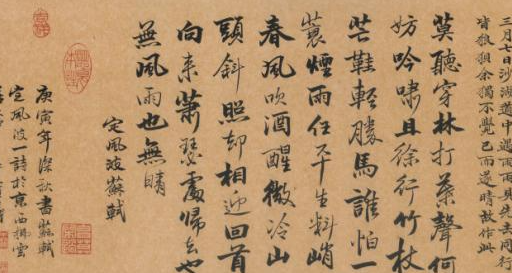 三月七日沙湖道中遇雨雨具先去同行
皆狼狽余獨不覺已而遂晴故作此
莫聽穿林打葉聲何
妨吟嘯且徐行竹杖
芒鞋輕勝馬誰怕一
蓑煙雨任平生料峭
春風吹酒醒微冷山
頭斜照却相迎回首
向來蕭瑟處歸去也
無風雨也無晴
定風波蘇軾
庚寅年深秋書蘇軾
定風波一詩於京西